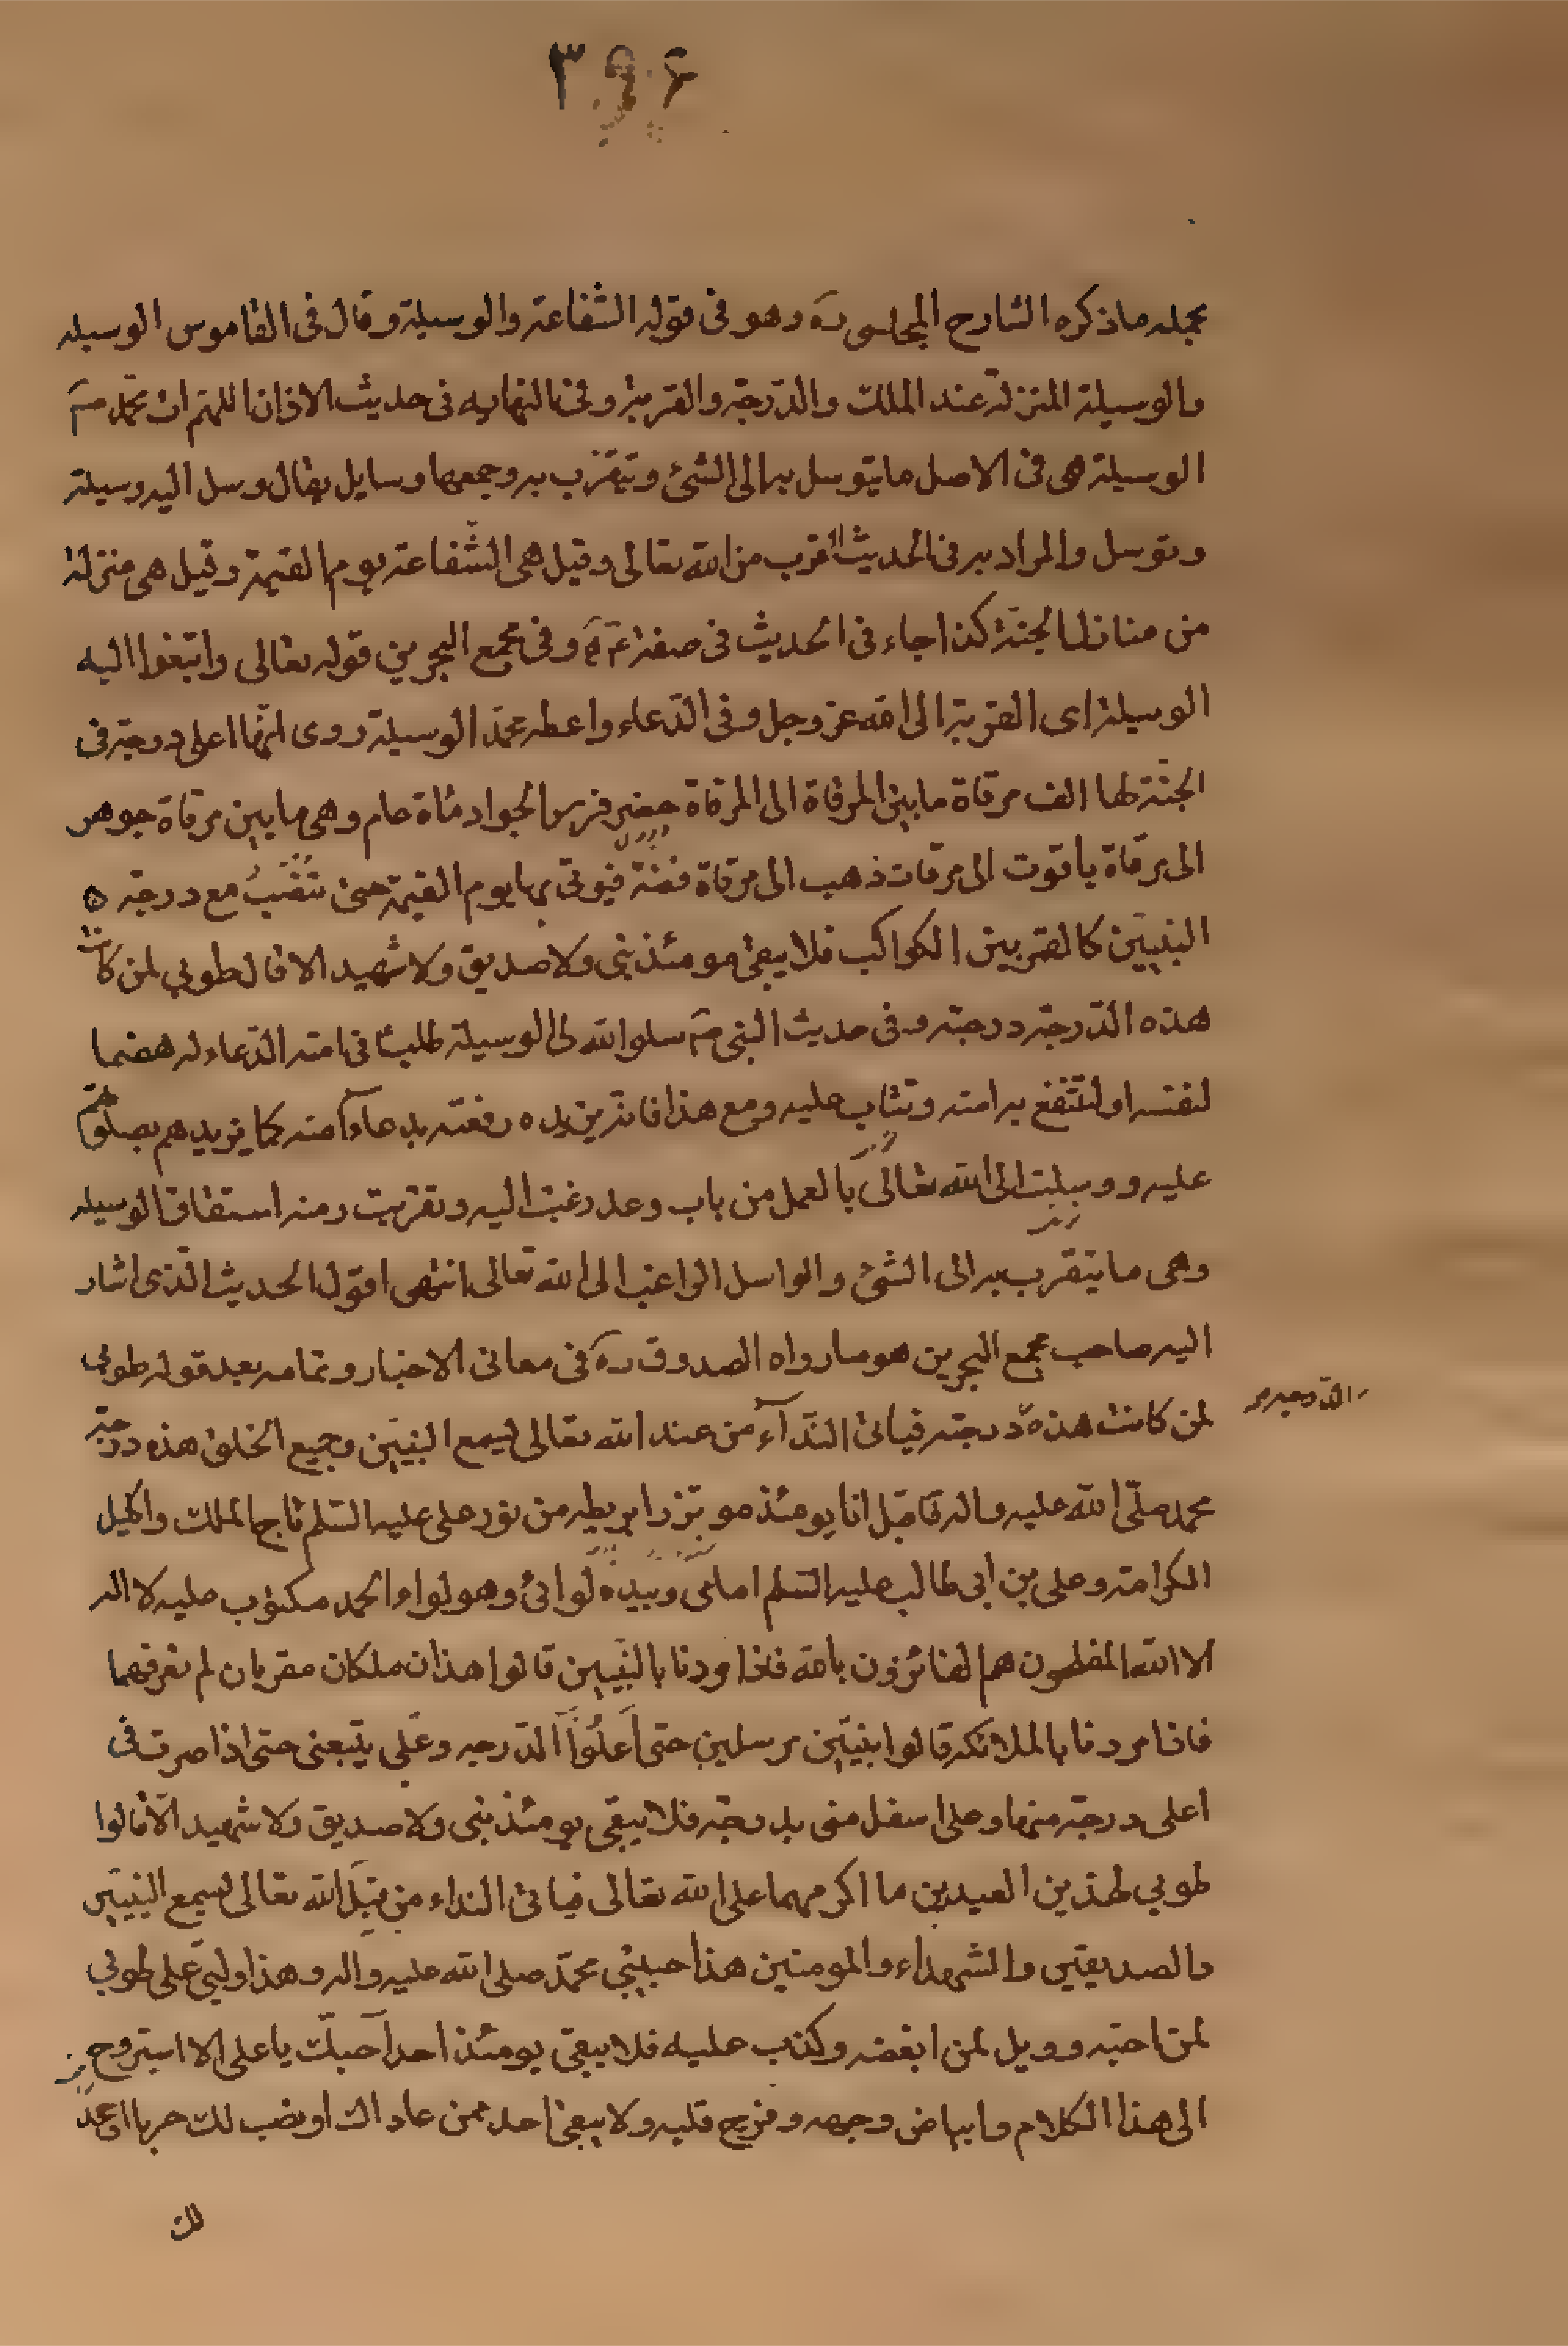 مجمله ما ذكره الشارح المجلسى ره وهو فى قوله الشفاعة والوسيلة وقال فى القاموس الوسيله
والوسيلة المنزلة عند الملك والدّرجة والقربة وفى النهايه فى حديث الاذان اللهم ات محمد ص
الوسيلة هى فى الاصل ما يتوسل به الى الشئ ويتقرّب به وجمعها وسايل يقال وسل اليه وسيلة
وتوسل والمراد به فى الحديث القرب من الله تعالى وقيل هى الشّفاعة يوم القيمة وقيل هى منزلة
من منازل الجنّة كذا جاء فى الحديث فى صفة وفى مجمع البحرين قوله تعالى وابتغوا اليه
الوسيلة اى القربة الى الله عز وجل وفى الدّعاء واعطه محمّد الوسيلة روى انّها اعلى درجة فى
الجنّة لها الف مرقاة ما بين المرقاة الى المرقاة حضر فرس الجواد مأة عام وهى ما بين مرقاة جوهر
الى مرقاة ياقوت الى مرقات ذهب الى مرقاة فضّة فيوتى بها يوم القيمة حتى تنصب مع درجة
النبيّين كالقمر بين الكواكب فلا يبقى يومئذ نبى ولا صديق ولا شهيد الا قال طوبى لمن كانت
هذه الدّرجة درجته وفى حديث النبى ص سلوا الله لى الوسيلة طلب فى امته الدّعاء له هضما
لنفسه او لتنتفع به امته وتثاب عليه ومع هذا فانه يزيده رفعته بدعاء امته كما يزيدهم بصلوتهم
عليه ووسلت الى الله تعالى بالعمل من باب وعد رغبت اليه وتقربت ومنه استقاق الوسيله
وهى ما يتقرب به الى الشئ والواسل الراغب الى الله تعالى انتهى اقول الحديث الذى اشار
اليه صاحب مجمع البحرين هو ما رواه الصدوق ره فى معانى الاخبار وتمامه بعد قوله طوبى
لمن كانت هذه درجته فياتى النّدآء من عند الله تعالى ليسمع النبيّين وجميع الخلق هذه درجة
محمد صلّى الله عليه واله فاقبل انا يومئذ موتزرا بريطه من نور على عليه السّلم تاج الملك واكليل
الكرامة وعلى بن ابى طالب عليه السّلم امامى وبيده لوائى وهو لواء الحمد مكتوب عليه لا اله
الا الله المفلحون هم الفائزون بالله فاذا مردنا بالنّبيين قالوا هذان ملكان مقربان لم نعرفهما
فاذا مردنا بالملائكة قالوا نبيّين مرسلين حتى اعلوا الدّرجه وعلى يتّبعنى حتى اذا صرت فى
اعلى درجة منها وعلى اسفل منى بدرجة فلا يبقى يومئذ نبى ولا صديق ولا شهيد الّا قالوا
طوبى لهذين العبدين ما اكرمهما على الله تعالى فياتى النداء من قبل الله تعالى ليسمع النبيّين
والصديقين والشهداء والمومنين هذا حبيبى محمّد صلى الله عليه واله وهذا وليى على طوبى
لمن احبّه وويل لمن ابغضه وكذب عليه فلا يبقى يومئذ احد احبك يا على الا استروح
الى هذا الكلام وابياض وجهه وفرح قلبه ولا يبقى احد ممن عاداك او نصب لك حربا او جحد
لك